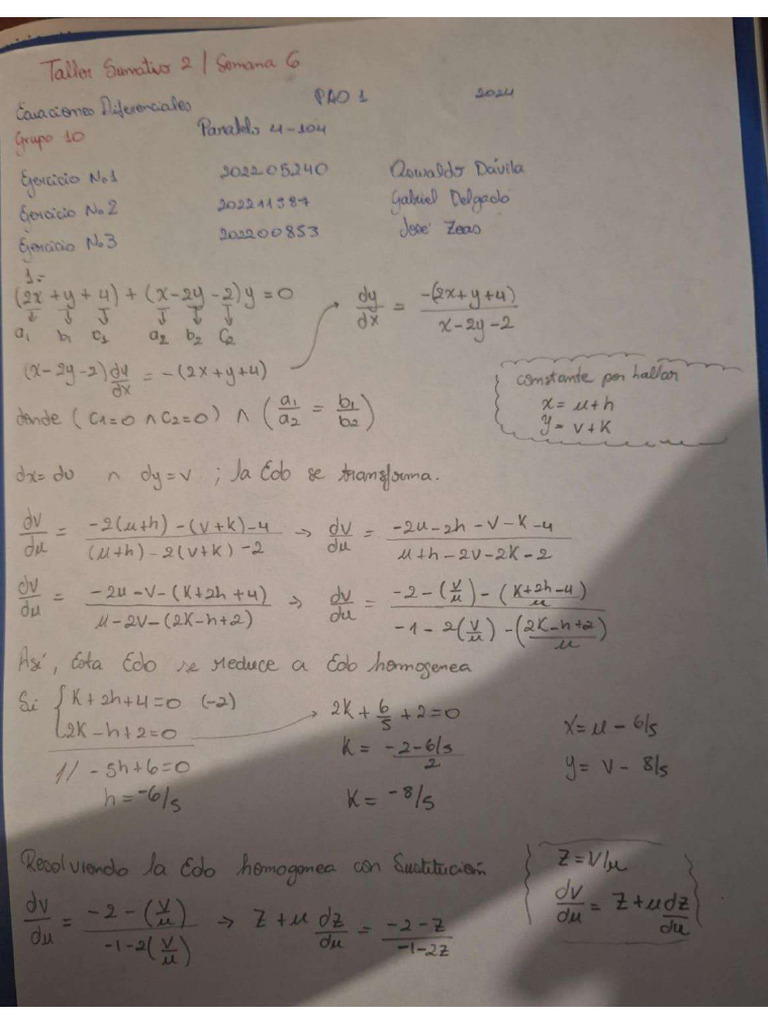 Taller Sumativo 2 / Semana 6
Ecuaciones Diferenciales PAO 1 2024
Grupo 10 Paralelo 4-104
Ejercicio No.1 202205240 Oswaldo Dávila
Ejercicio No.2 202211387 Gabriel Delgado
Ejercicio No.3 202200853 José Zeas
1:-
(2x + y + 4) + (x - 2y - 2)y = 0 → dy/dx = -(2x+y+4)/(x-2y-2)
a₁ b₁ c₁ a₂ b₂ c₂
(x-2y-2) dy/dx = -(2x+y+4)
constante por hallar
x = u+h
y = v+k
donde (c₁=0 ∧ c₂=0) ∧ (a₁/a₂ = b₁/b₂)
dx = du ∧ dy = v ; la Edo se transforma.
dv/du = (-2(u+h) - (v+k) - 4)/((u+h) - 2(v+k) - 2) → dv/du = (-2u-2h-v-k-4)/(u+h-2v-2k-2)
dv/du = (-2u-v-(k+2h+4))/(u-2v-(2k-h+2)) → dv/du = (-2-(v/u)-((k+2h-4)/u))/(-1-2(v/u)-((2k-h+2)/u))
Así, Esta Edo se reduce a Edo homogenea
Si { k+2h+4=0 (-2)
2k-h+2=0 → 2k + 6/5 + 2 = 0
1/ -5h+6=0 k = (-2-6/5)/2
h = -6/5 k = -8/5
x = u - 6/5
y = v - 8/5
Resolviendo la Edo homogenea con Sustitución
z = v/u
dv/du = z + u dz/du
dv/du = (-2-(v/u))/(-1-2(v/u)) → z + u dz/du = (-2-z)/(-1-2z)